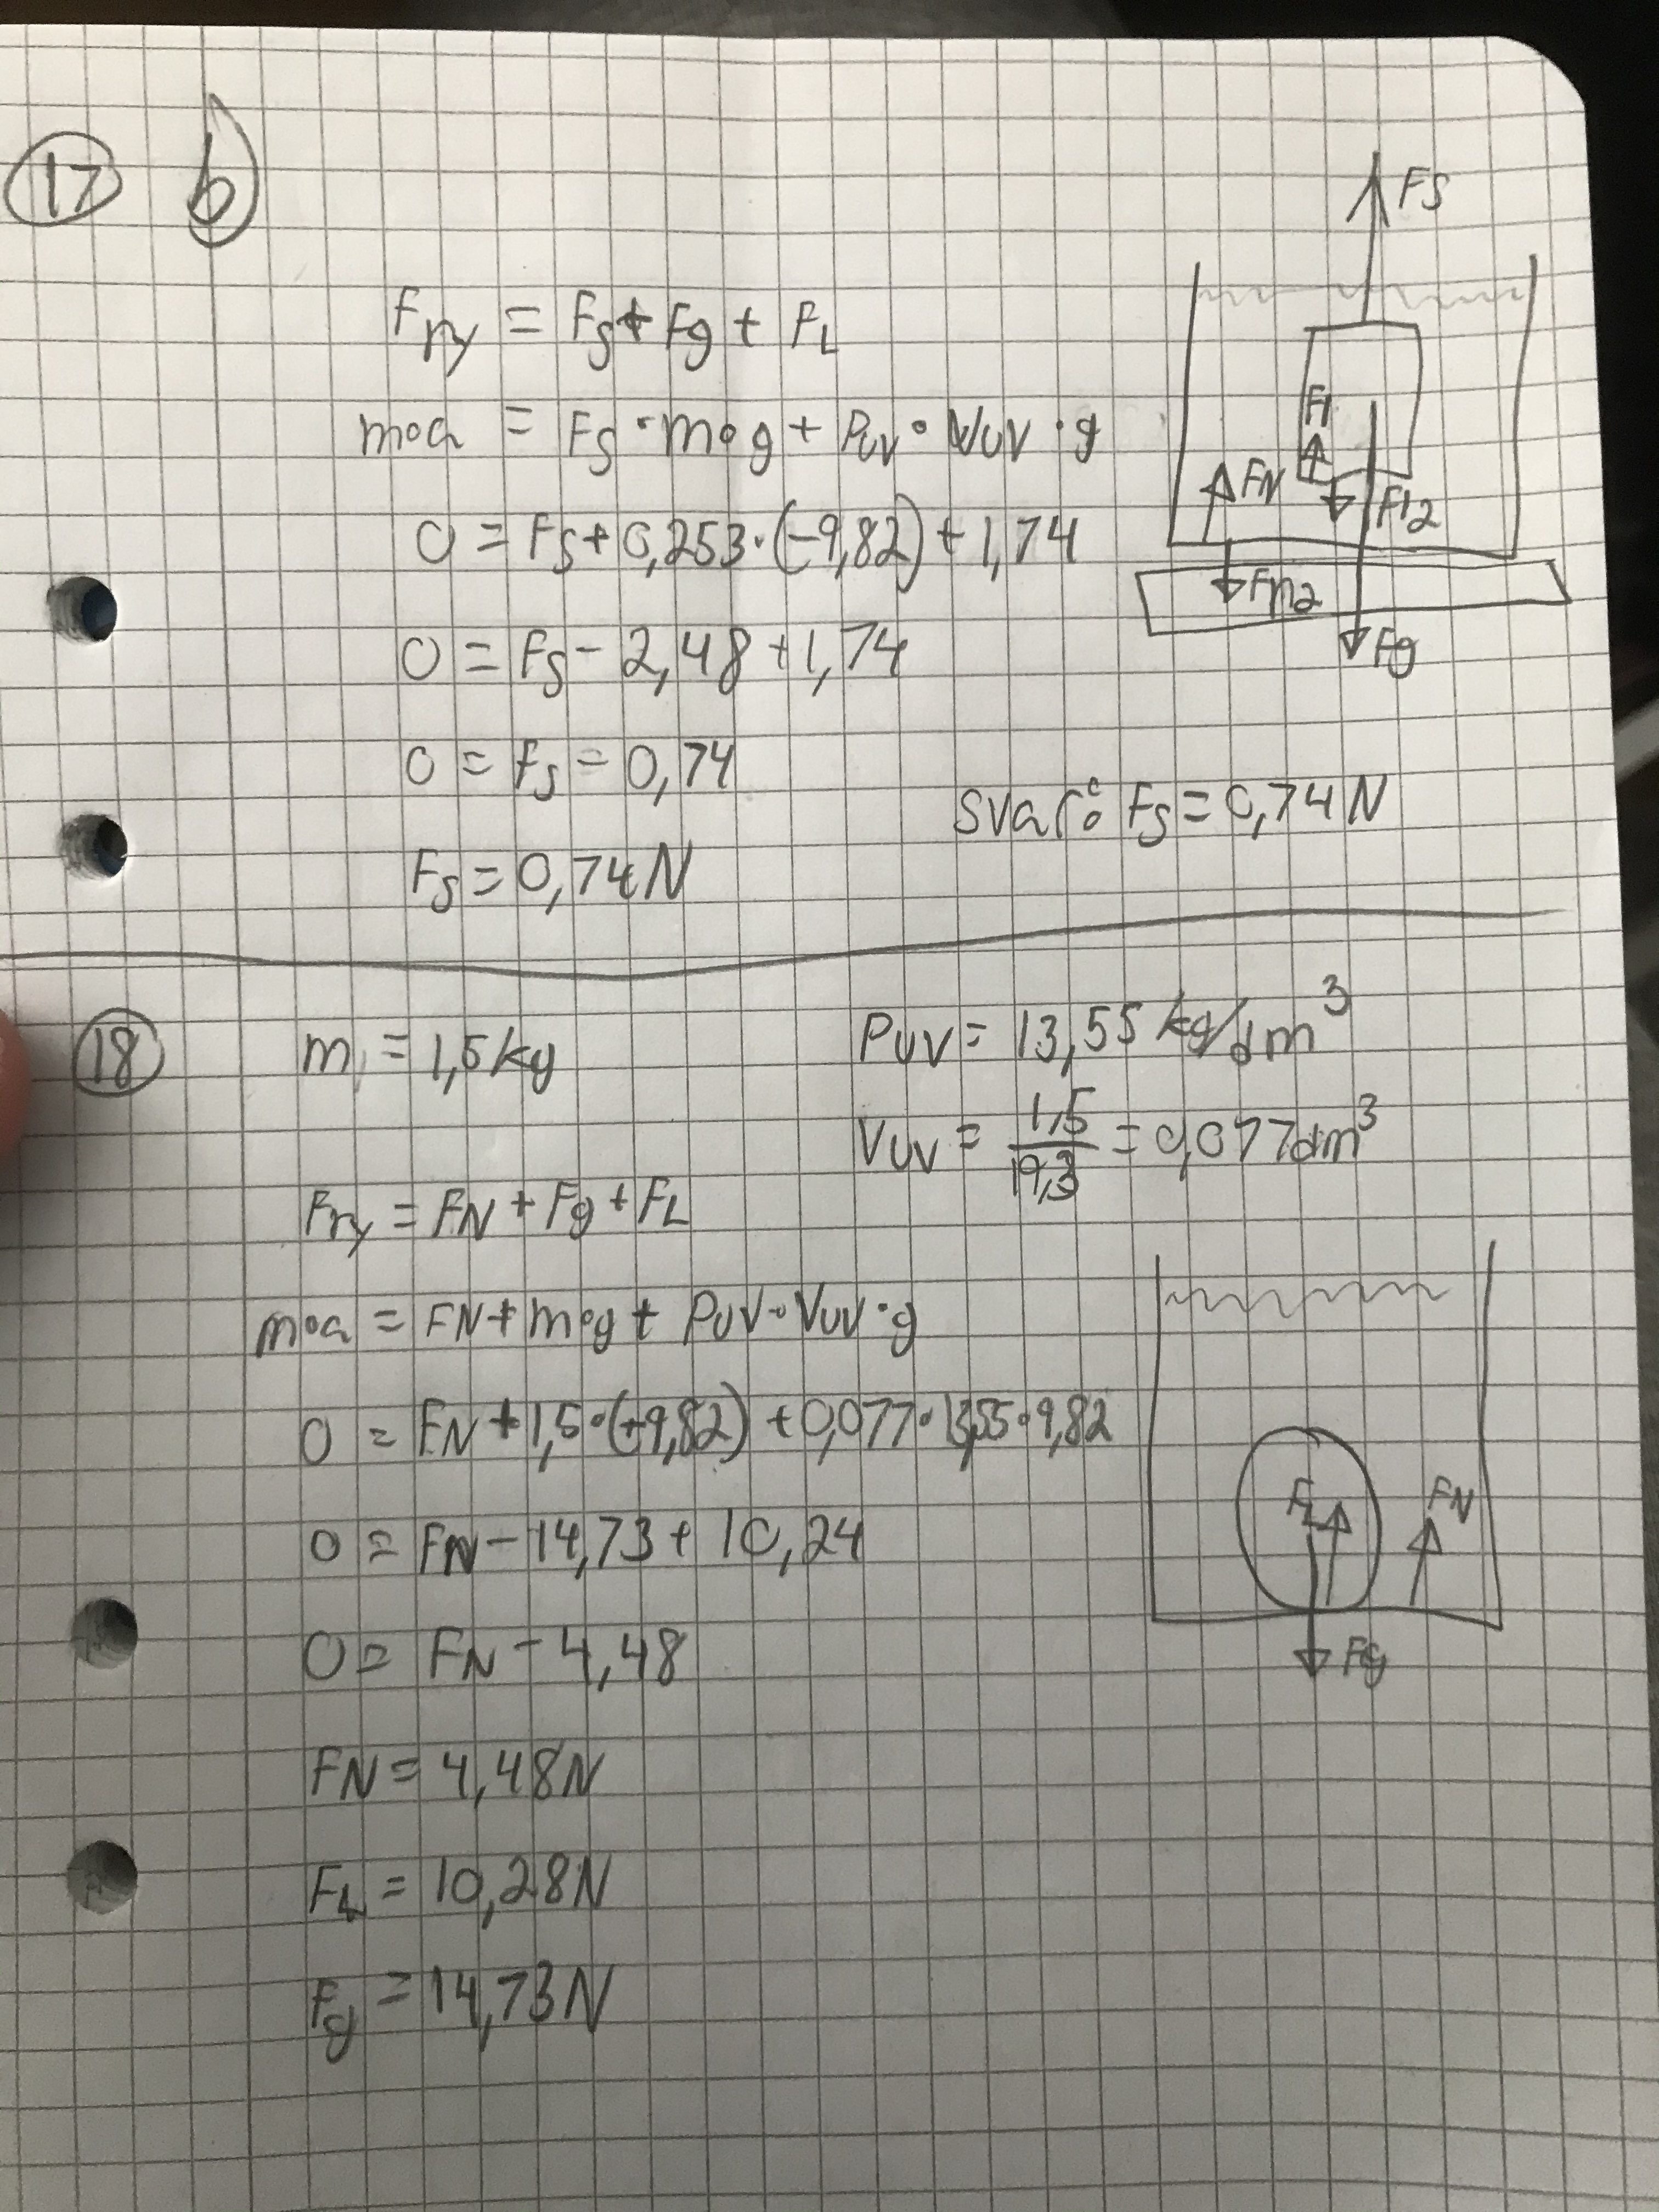 17 b)
FS
Fry = Fs + Fg + FL
m∘a = Fs · m∘g + Puv · Vuv · g
0 = Fs + 0,253 · (-9,82) + 1,74
0 = Fs - 2,48 + 1,74
0 = Fs = 0,74
Fs = 0,74 N
Fl
FN Fl2
Fn2
Fg
Svar: Fs = 0,74 N
18 m = 1,5 kg
Puv = 13,55 kg/dm³
Vuv = 1,5/19,3 = 0,077 dm³
Fry = FN + Fg + FL
m∘a = FN + m∘g + Puv · Vuv · g
0 = FN + 1,5 · (-9,82) + 0,077 · 13,55 · 9,82
0 = FN - 14,73 + 10,24
0 = FN - 4,48
FN = 4,48 N
FL = 10,28 N
Fg = 14,73 N
FL FN
Fg